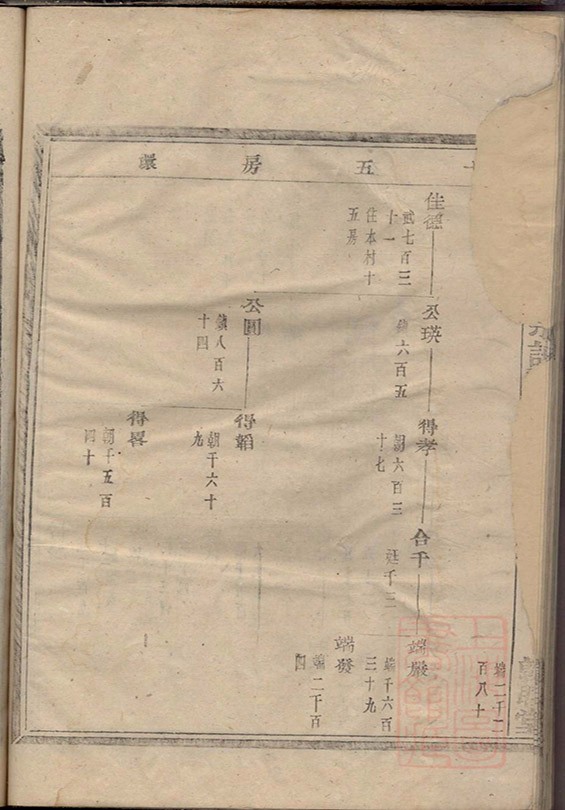 十五房璟
佳德
貳七百三
十一
住本村十
五房
公瑛
鎮六百五
得孝
朝六百三
十七
合千
廷千二
端嚴
端千六百
三十九
端發
端二千百
四
公圓
鎮八百六
十四
得韜
朝千六十
九
得畧
朝千五百
四十
百八十